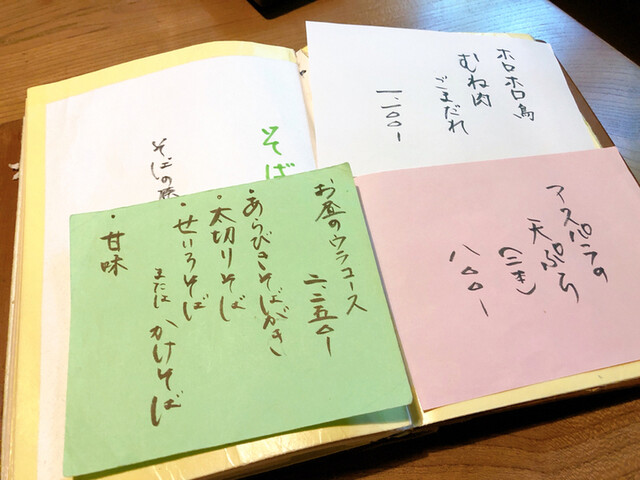 ホロホロ鳥
むね肉
ごまだれ
一、二〇〇-
アスパラの
天ぷら
(二本)
八〇〇-
そば
そばの
お昼のウラコース
二、二五〇-
・あらびきそばがき
・太切りそば
・せいろそば
または かけそば
・甘味